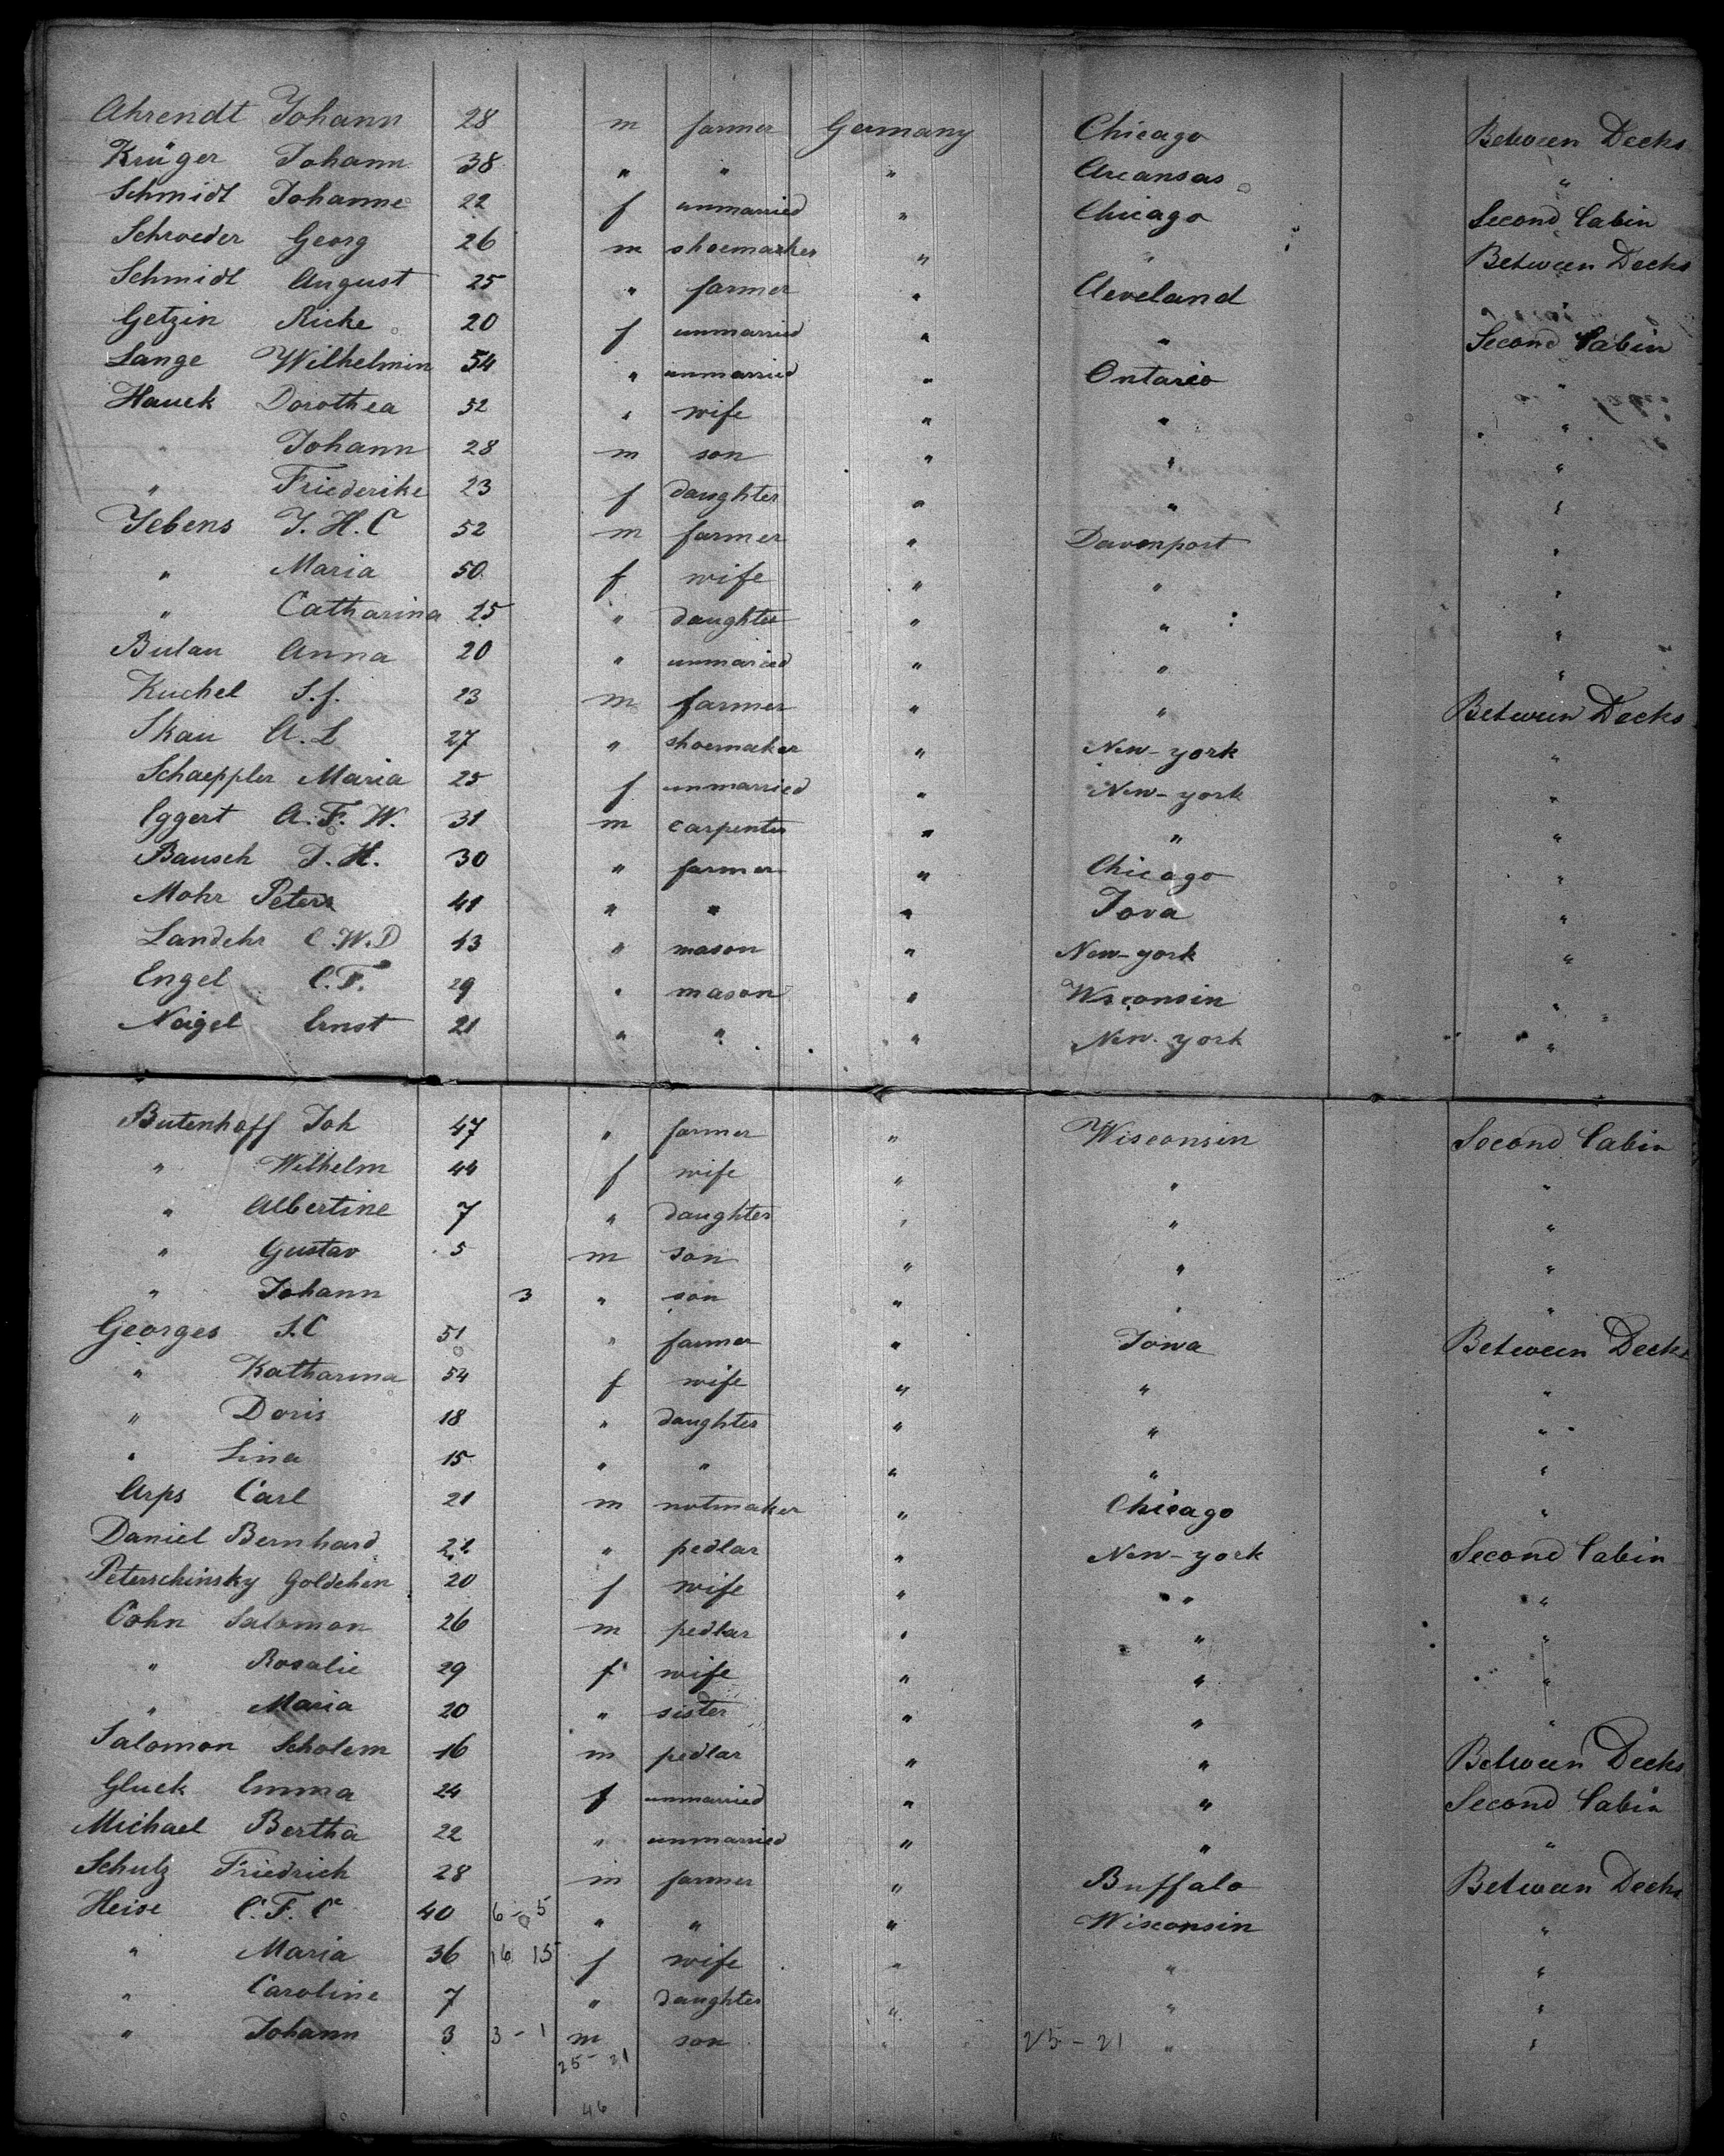 Ahrendt Johann 28 m farmer Germany Chicago Between Decks
Krüger Johann 38 " " " Arcansas "
Schmidt Johanne 22 f unmarried " Chicago Second Cabin
Schroeder Georg 26 m shoemacker " " Between Decks
Schmidt August 25 " farmer " Cleveland "
Getzin Rieke 20 f unmarried " " Second Cabin
Lange Wilhelmin 54 " unmarried " Ontario "
Hauck Dorothea 52 " wife " " "
" Johann 28 m son " " "
" Friederike 23 f daughter " " "
Jebens J. H. C 52 m farmer " Davenport "
" Maria 50 f wife " " "
" Catharina 25 " daughter " " "
Bulau Anna 20 " unmaried " " "
Kuchel S. f. 23 m farmer " " Between Decks
Skau A. L 27 " shoemaker " New-york "
Schaeppler Maria 25 f unmarried " New-york "
Eggert A. F. W. 31 m carpenter " " "
Bausch J. H. 30 " farmer " Chicago "
Mohr Peter 41 " " " Iova "
Landehr C. W. D 43 " mason " New-york "
Engel C. F. 29 " mason " Wisconsin "
Nagel Ernst 21 " " " New-york "
Butenhoff Joh 47 " farmer " Wisconsin Second Cabin
" Wilhelm 44 f wife " " "
" Albertine 7 " daughter " " "
" Gustav 5 m son " " "
" Johann 3 " son " " "
Georges S. C 51 " farmer " Iowa Between Decks
" Katharina 54 f wife " " "
" Doris 18 " daughter " " "
" Lina 15 " " " " "
Arps Carl 21 m notmaker " Chicago "
Daniel Bernhard 22 " pedlar " New-york Second Cabin
Peterschinsky Goldchen 20 f wife " " "
Cohn Salomon 26 m pedlar " " "
" Rosalie 29 f wife " " "
" Maria 20 " sister " " "
Salomon Scholem 16 m pedlar " " Between Decks
Gluck Emma 24 f unmarried " " Second Cabin
Michael Bertha 22 " unmarried " " "
Schulz Friedrich 28 m farmer " Buffalo Between Decks
Heise C. F. C 40 6 - 5 " " " Wisconsin "
" Maria 36 16 15 f wife " " "
" Caroline 7 " daughter " " "
" Johann 3 3 - 1 m son " 25 - 21 " "
25 - 21
46